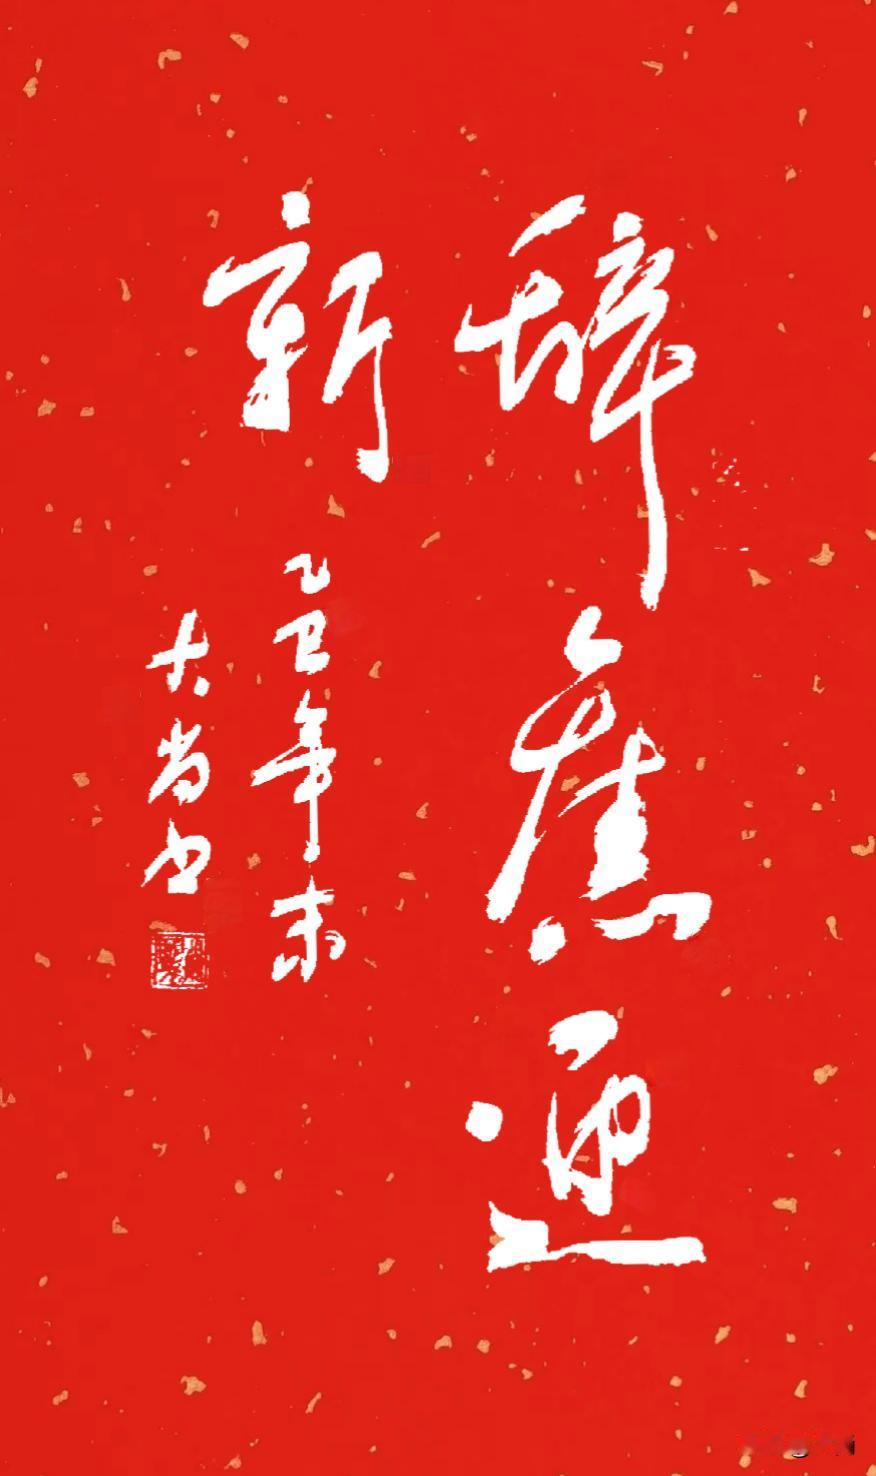 辞舊迎
新
乙巳年末
大尚书